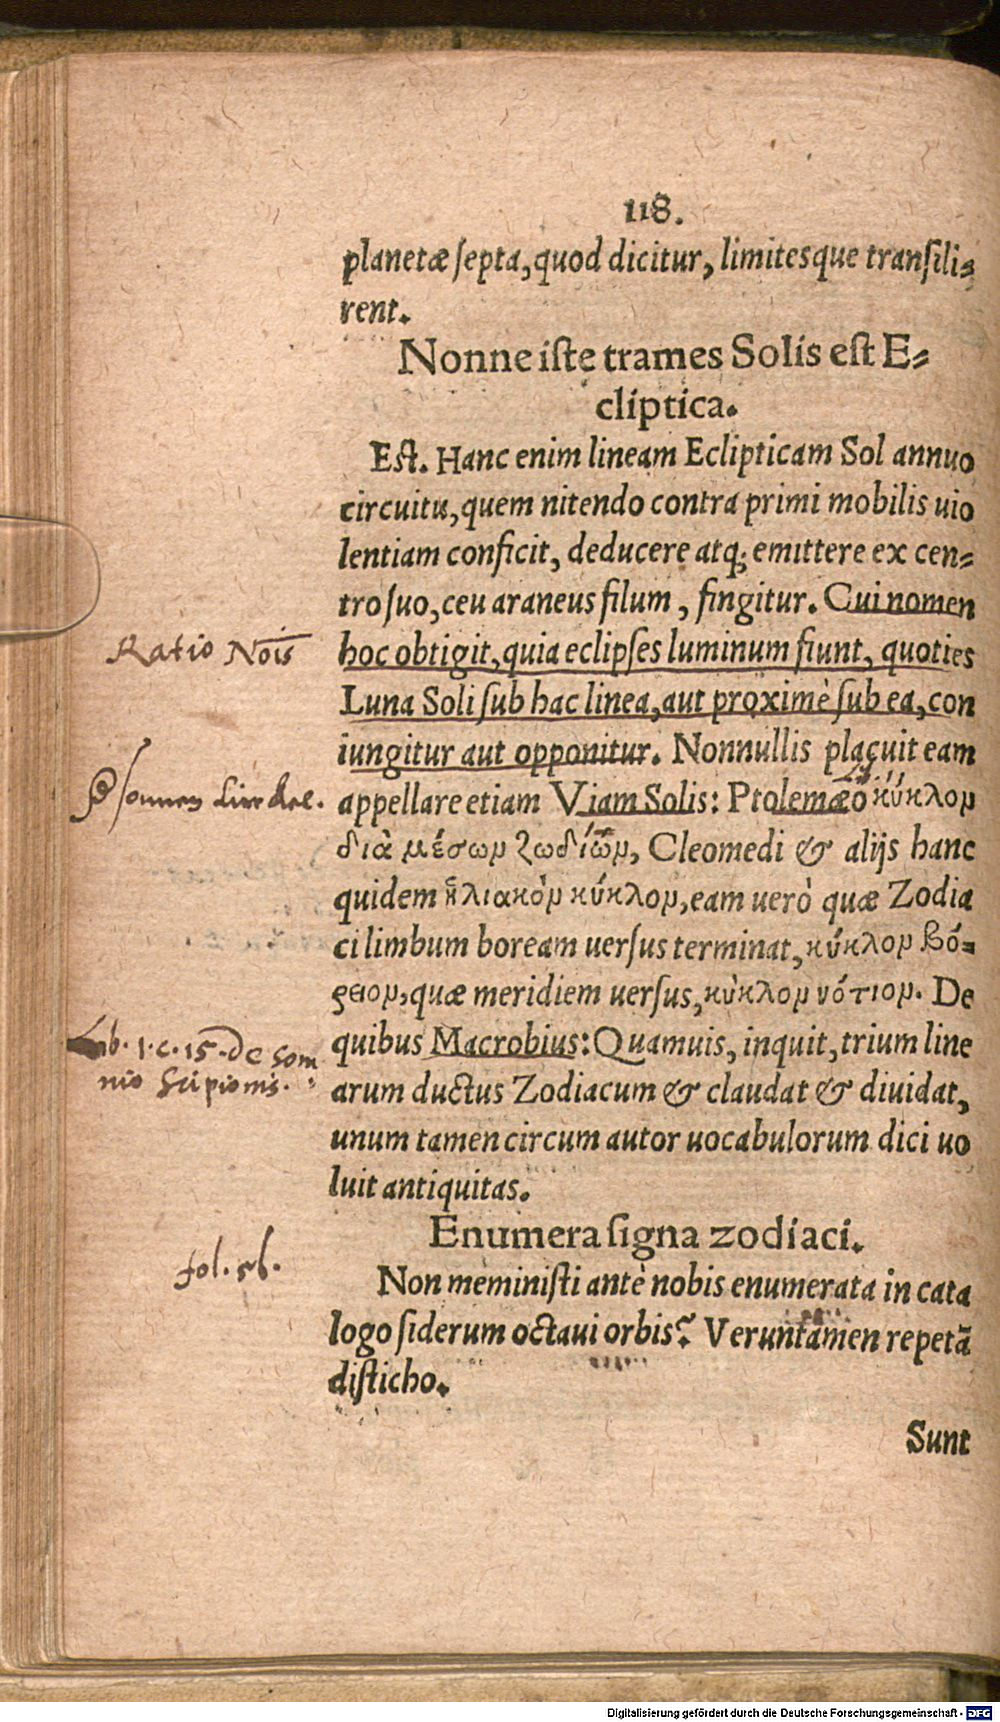 118.
planetæ septa, quod dicitur, limitesque transili⸗
rent.
Nonne iste trames Solis est E⸗
cliptica.
Est. Hanc enim lineam Eclipticam Sol annuo
circuitu, quem nitendo contra primi mobilis uio
lentiam conficit, deducere atq; emittere ex cen⸗
tro suo, ceu araneus filum, fingitur. Cui nomen
Ratio Nois
hoc obtigit, quia eclipses luminum fiunt, quoties
Luna Soli sub hac linea, aut proximè sub ea, con
iungitur aut opponitur. Nonnullis placuit eam
appellare etiam Viam Solis: Ptolemæo κύκλον
διὰ μέσων ζωδίων, Cleomedi & alijs hanc
quidem ἡλιακὸν κύκλον, eam uerò quæ Zodia
ci limbum boream uersus terminat, κύκλον βό⸗
ρειον, quæ meridiem uersus, κύκλον νότιον. De
Lib. 1. c. 15. de Som
nio Scipionis.
quibus Macrobius: Quamuis, inquit, trium line
arum ductus Zodiacum & claudat & diuidat,
unum tamen circum autor uocabulorum dici uo
luit antiquitas.
Enumera signa zodiaci.
fol. 56.
Non meministi antè nobis enumerata in cata
logo siderum octaui orbis? Veruntamen repetã
disticho.
Sunt
Digitalisierung gefördert durch die Deutsche Forschungsgemeinschaft - DFG